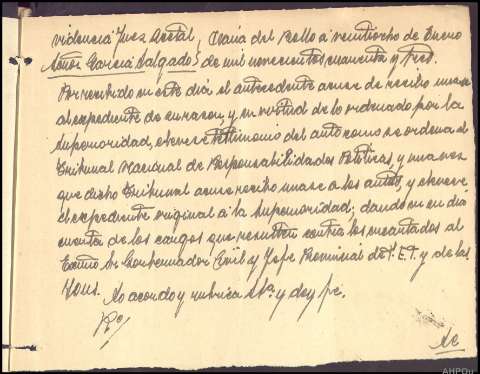 videncia Juez Acctal, Viana del Bollo a veintiocho de Enero
Señor García Salgado: de mil novecientos cuarenta y tres.
Por recibido en este día el antecedente acuse de recibo unase
al expediente de su razon, y en virtud de lo ordenado por la
Superioridad, elevese testimonio del auto como se ordena al
Tribunal Nacional de Responsabilidades Politicas, y una vez
que dicho Tribunal acuse recibo unase a los autos, y elevese
el expediente original a la Superioridad; dando en su dia
cuenta de los cargos que resulten contra los encartados al
Excmo Sr Gobernador Civil y Jefe Provincial de F.E.T. y de las
Jons. Lo acordo y rubrica Sª. y doy fe.
AHPOu